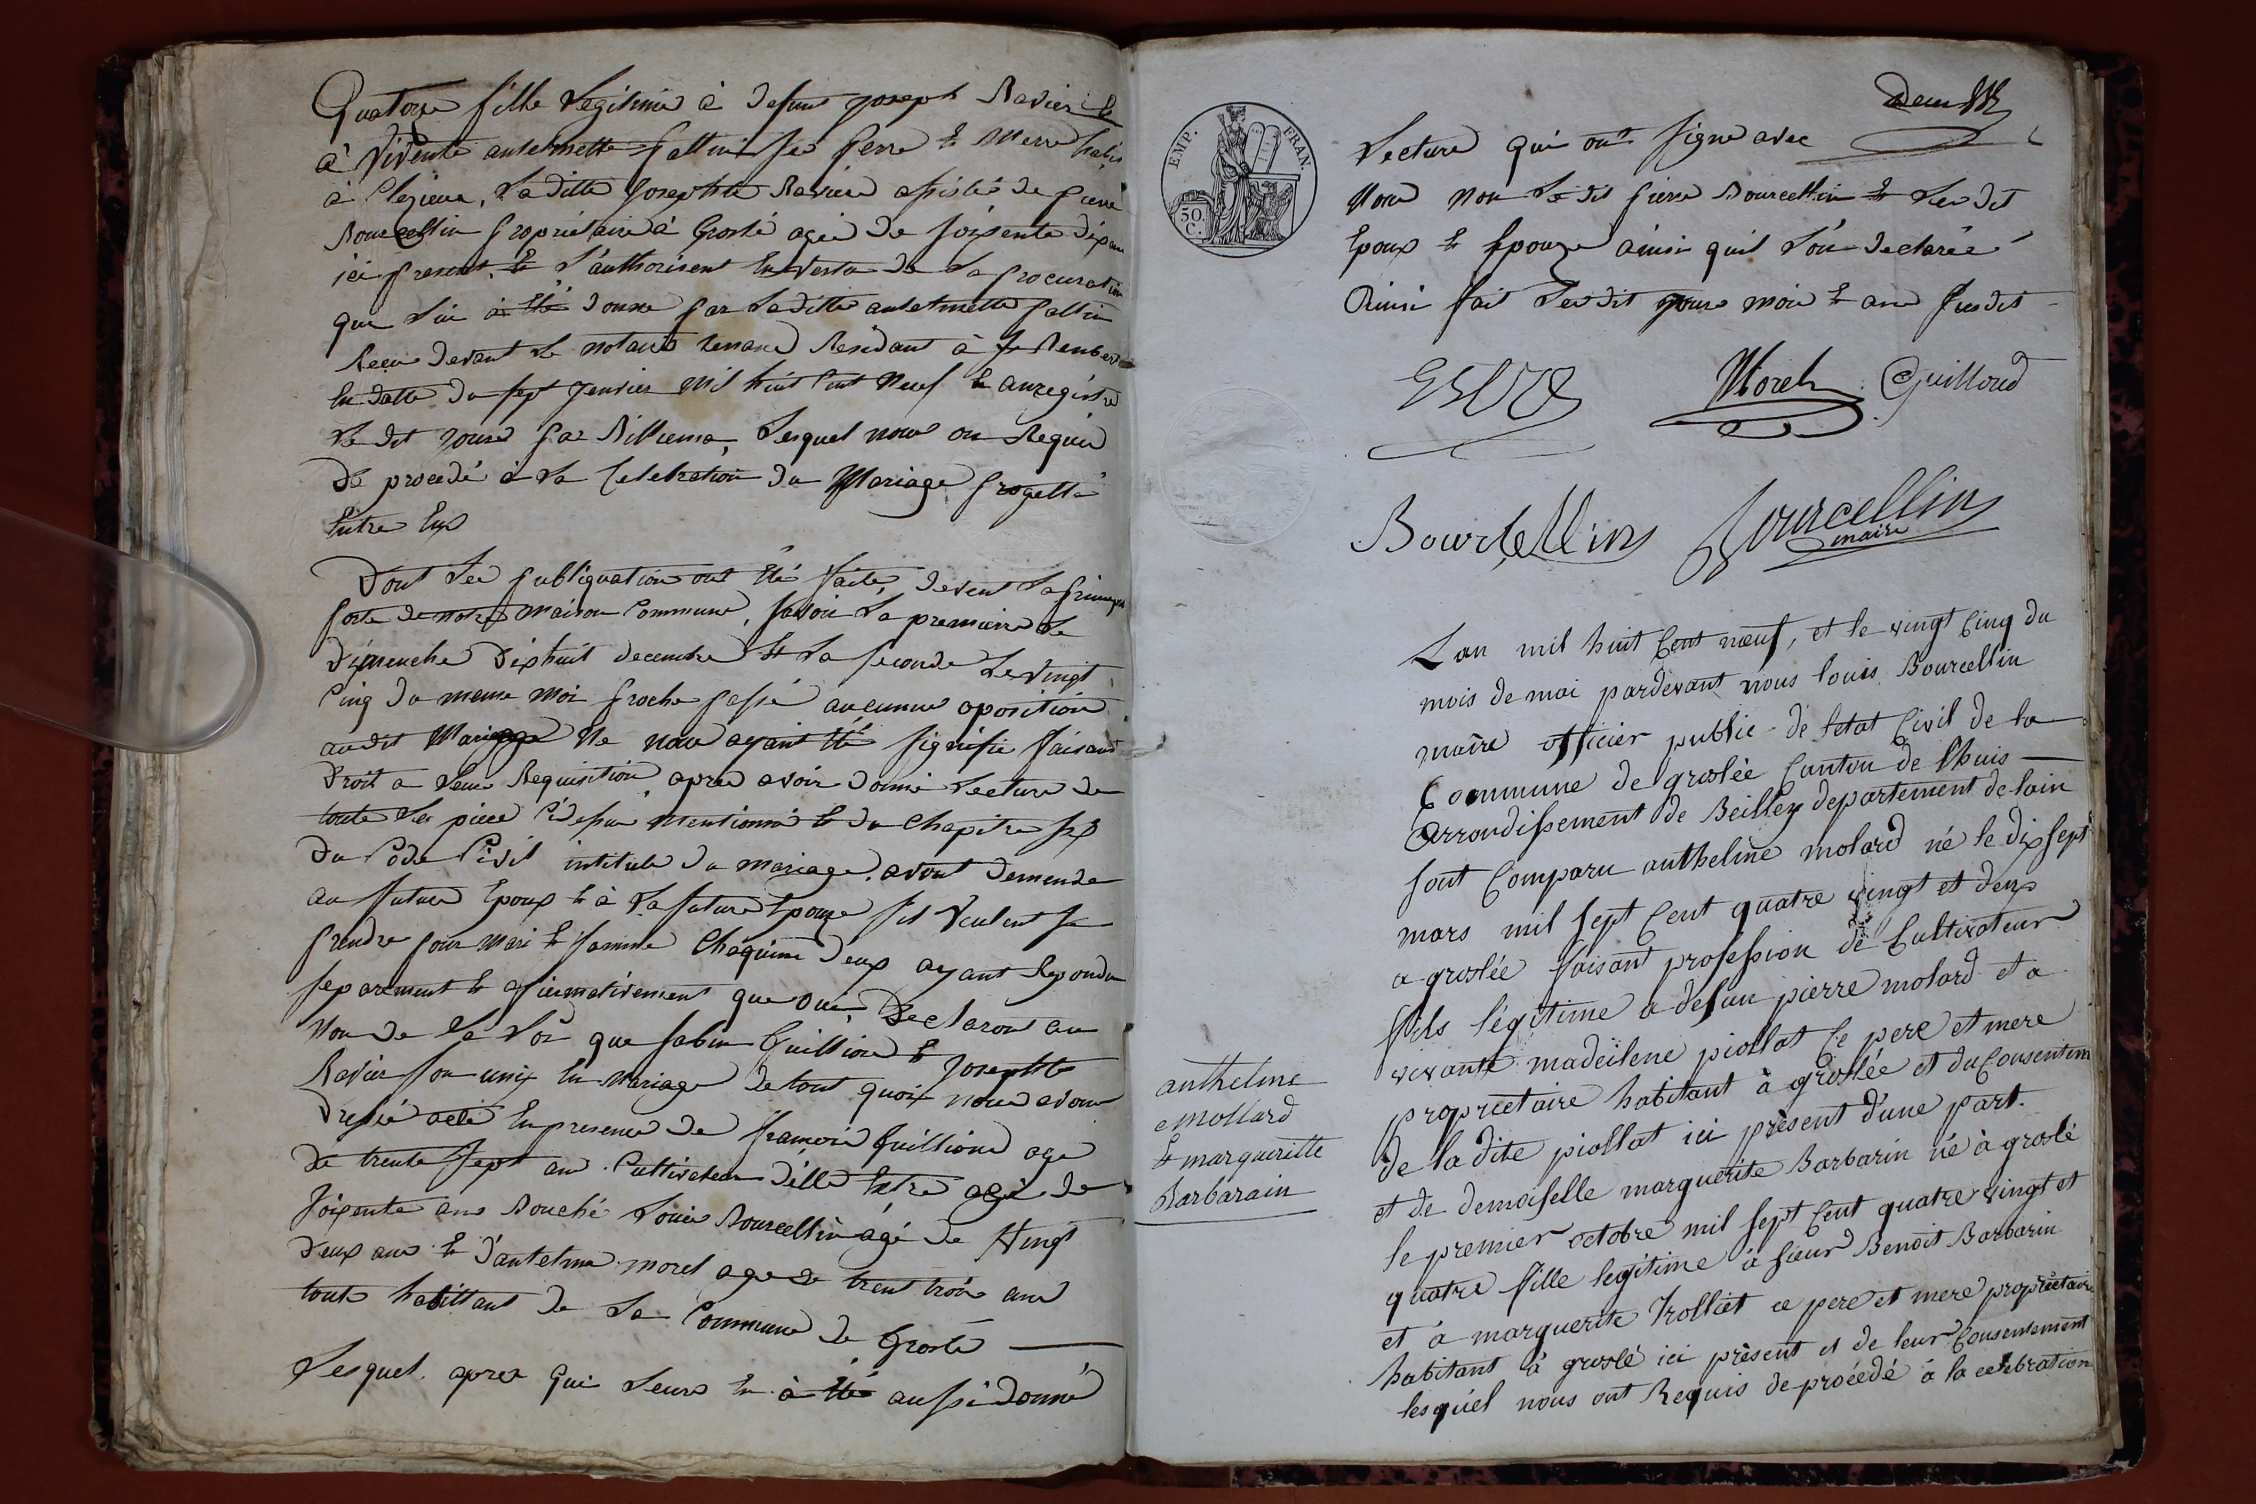 Quatorze fille Legitime à defunt joseph Ravier &
à Vivente antelmette pallin ses perre & Merre habit
à Clezieux, La ditte Josephte Ravier assistée de pierre
Bourcellin propriétaire à Groslé agée de soixente dix ans
ici present, & L'authorisent En Vertu de La procuration
que Lui à Eté donnée par La ditte antelmette pallin
Recu devant Le notaire Résidant à St Rember
En datte du sept Janvier Mil huit Cent Neuf & anregistré
Le dit jours par Billiema, Lesquel nous on Requis
De procedé à La Celebration du Mariage projetté
Entre Eux
Dont Les publiquation ont Eté faite, devent La principal
porte de notre Maison Commune, savoir La premiere Le
Dimenche Dixhuit decembre & La seconde Le Vingt
Cinq du meme Moi proche passé aucunne oposition
audit Mariage Ne nous ayant Eté signifie faisant
Droit a Leur Requisition, apres avoir donné Lecture de
toute Les piece Cidessus mentionné & du Chapitre six
Du Code Civil intitulé du mariage, avont demende
au futur Epoux & à La future Epouze sil Veulent se
prendre pour Mari & famme Chaquun d'eux ayant Repondu
separement & afirmativement que oui, Declarons au
Non de La Loi que fabin Guillion & Josephte
Ravier son unix En Mariage de tout quoix nous avons
Dressé acte En presence de françois Guillion age
de trente sept ans Cultivateur d'illé Entre agé de
soixente ans Bouché Louis Bourcellin agé de Vingt
deux ans & D'antelme morel age de trent trois ans
touts habittant de La Commune de Groslé
Lesquel apres qui Leurs En à Eté aussi donné
Deux
EMP. FRAN.
50. C.
Lecture qui ont signe avec
Nous Non Le dit pierre Bourcellin & Les dit
Epoux & Epouze ainsi quil L'on declarée
Ainsi fait Les dit jours mois & ans susdit
Morel Guilloud
Bourcellin Bourcellin
maire
Lan mil huit Cent nœuf, et le vingt Cinq du
mois de mai pardevant nous louis Bourcellin
maire officier public de letat Civil de la
Commune de groslée Canton de lhuis
Arrondissement de Beilley departement de lain
sont Comparu antheline molard né le dix sept
mars mil sept Cent quatre vingt et deux
a groslée faisant profession de Cultivateur
fils légitime a defun pierre molard et a
vivante madeilene piollat Ce pere et mere
proprietaire habitant à groslée et du Consentem
de la dite piollat ici présent d'une part.
et de demoiselle marguerite Barbarin né à groslé
le premier octobre mil sept Cent quatre vingt et
quatre fille legitime à sieur Benoit Barbarin
et à marguerite trolliet ce pere et mere proprietaire
habitant à groslé ici présent et de leur Consentement
lesquél nous ont Requis de procédé à la celebration
anthelme
Mollard
& margueritte
Barbarain